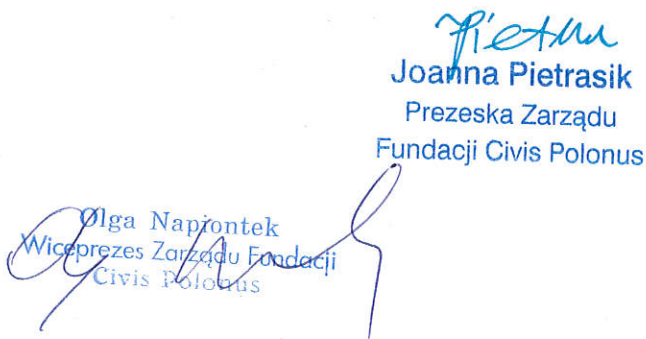 Joanna Pietrasik
Prezeska Zarządu
Fundacji Civis Polonus
Olga Napiontek
Wiceprezes Zarządu Fundacji
Civis Polonus